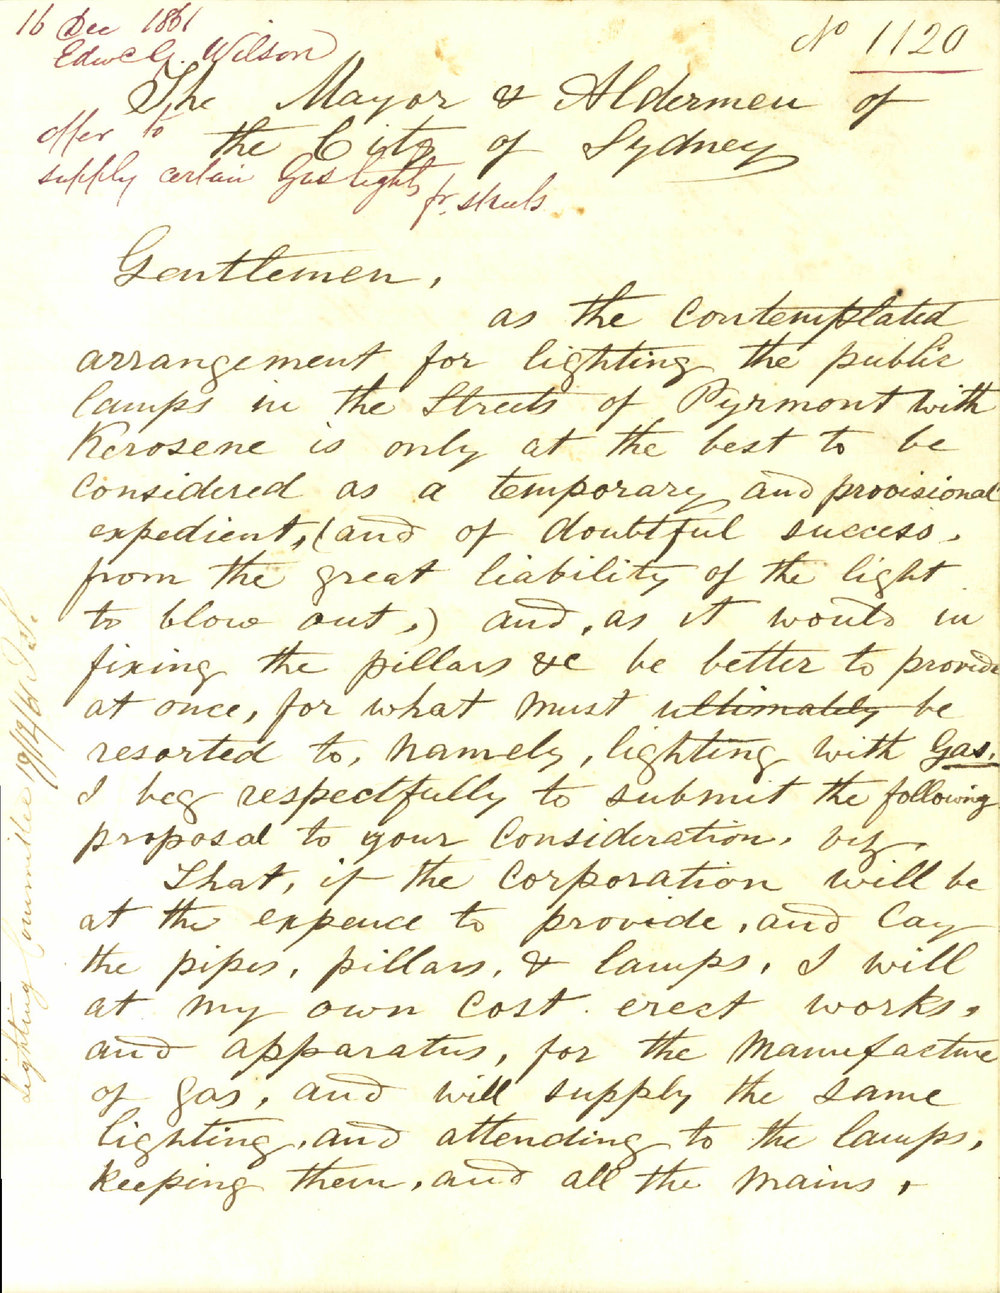 16 Dec 1861
Edwd G. Wilson
No 1120
The Mayor & Aldermen of
offer to
the City of Sydney
supply certain Gas lights
fr. streets
Gentlemen,
as the contemplated
arrangement for lighting the public
lamps in the Streets of Pyrmont with
Kerosene is only at the best to be
considered as a temporary and provisional
expedient, (and of doubtful success,
from the great liability of the light
to blow out,) and, as it would in
fixing the pillars &c be better to provide
at once, for what must ultimately be
resorted to, namely, lighting with Gas.
I beg respectfully to submit the following
proposal to your Consideration. viz.
That, if the Corporation will be
at the expence to provide, and lay
the pipes, pillars, & lamps, I will
at my own cost erect works,
and apparatus, for the Manufacture
of gas, and will supply the same
lighting, and attending to the lamps,
keeping them, and all the mains,
Lighting Committee 19/12/61